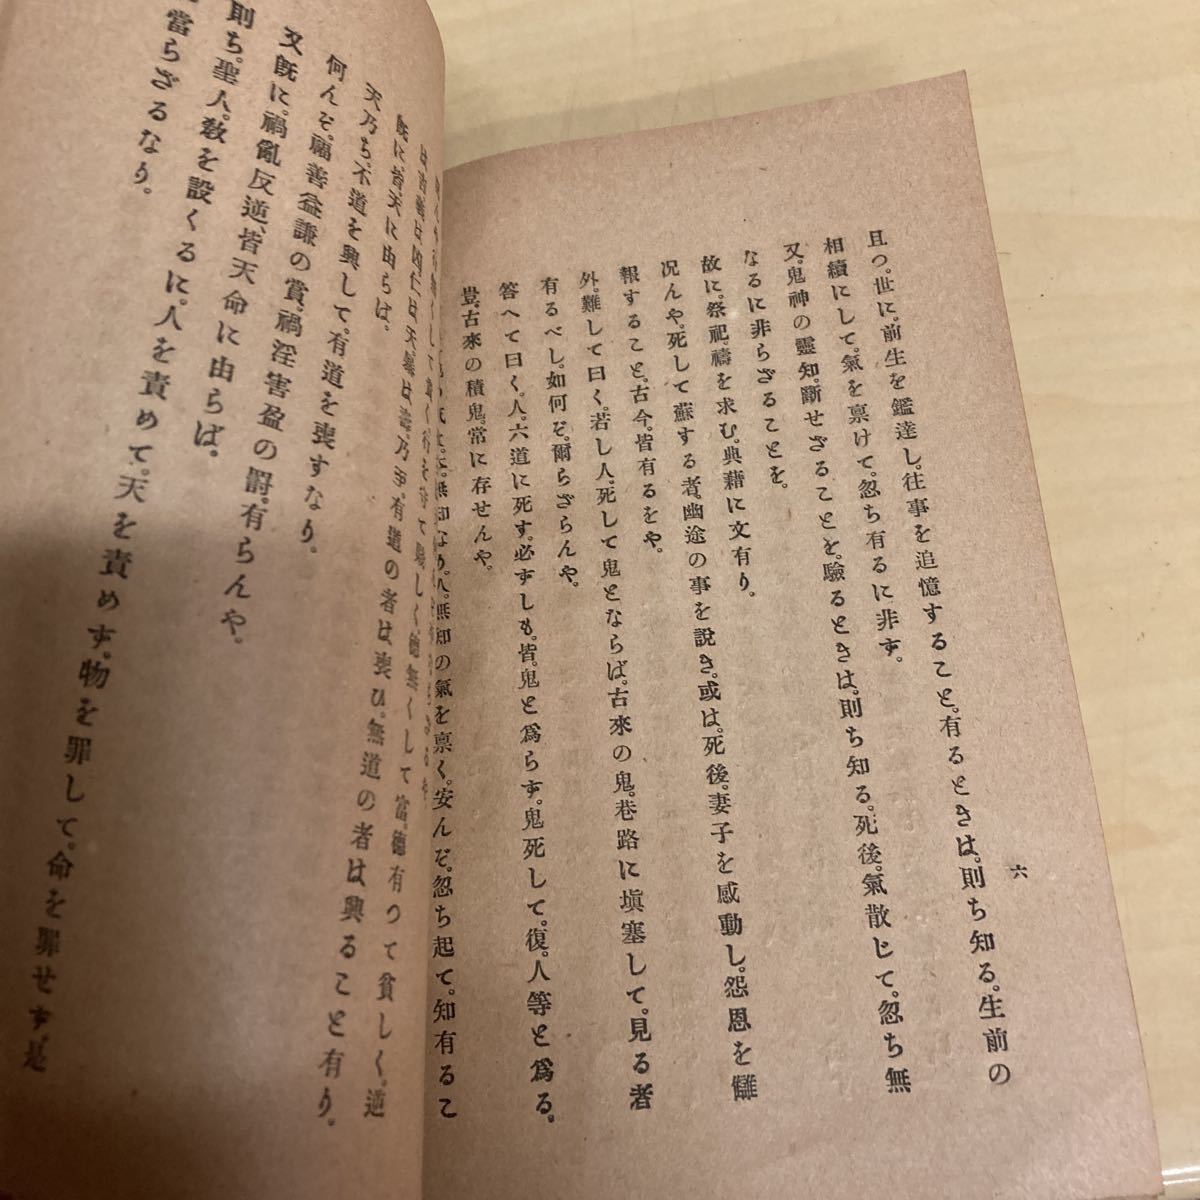 六
且つ。世に。前生を鑑達し。往事を追憶すること。有るときは。則ち知る。生前の
相續にして。氣を禀けて。忽ち有るに非ず。
又。鬼神の靈知。斷せざることを。驗るときは。則ち知る。死後。氣散じて。忽ち無
なるに非らざることを。
故に。祭祀禱を求む。典藉に文有り。
况んや。死して蘇する者。幽途の事を說き。或は。死後。妻子を感動し。怨恩を讎
報すること。古今。皆有るをや。
外。難して曰く。若し人。死して鬼とならば。古來の鬼。巷路に塡塞して。見る者
有るべし。如何ぞ。爾らざらんや。
答へて曰く。人。六道に死す。必ずしも。皆。鬼と爲らず。鬼死して。復。人等と爲る。
豈。古來の積鬼。常に存せんや。
無知なり。人。無知の氣を禀く。安んぞ。忽ち起て。知有るこ
德無くして富。德有つて貧しく。逆
は吉
乃至。有道の者は喪ひ。無道の者は興ること有り。
既に。皆。天に由らは。
天乃ち。不道を興して。有道を喪すなり。
何んぞ。福善益謙の賞。禍淫害盈の罸。有らんや。
又既に。禍亂反逆。皆天命に由らば。
則ち。聖人。敎を設くるに。人を責めて。天を責めず。物を罪して。命を罪せず。是
當らざるなり。